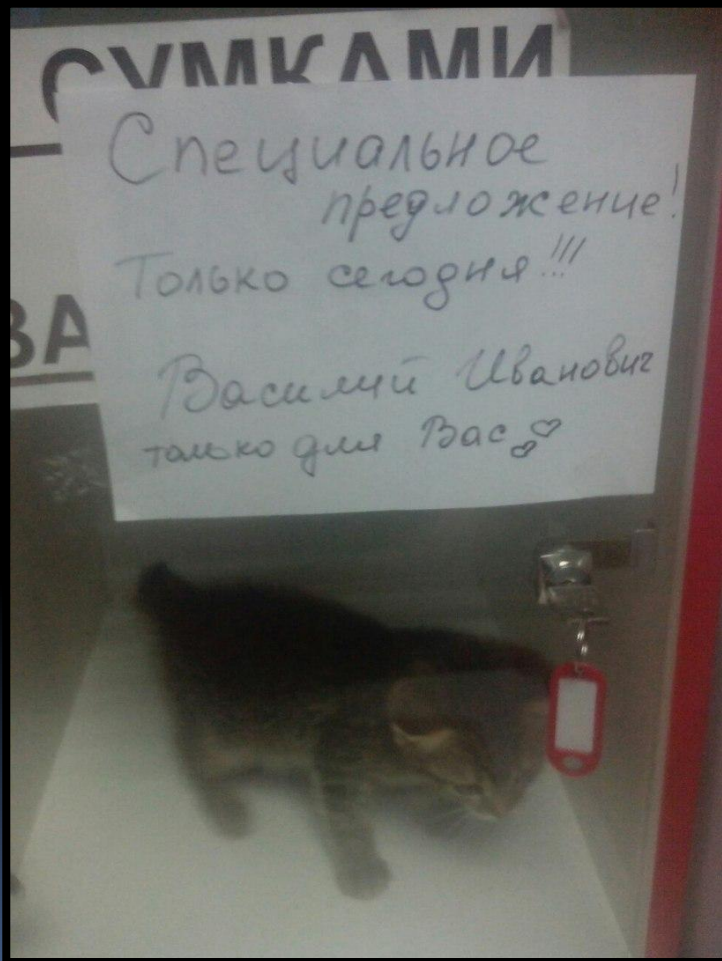 СУМКАМИ
Специальное
предложение!
Только сегодня!!!
ВА
Василий Иванович
только для Вас